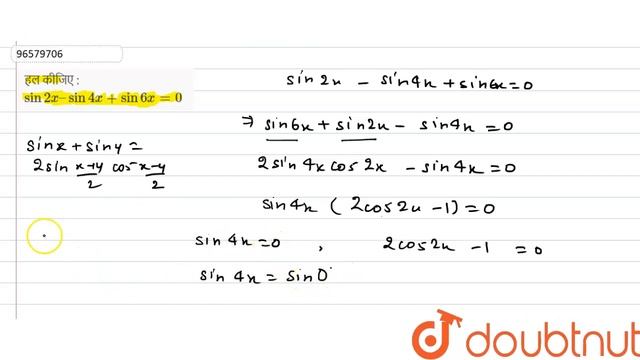 96579706
हल कीजिए :
sin 2x– sin 4x + sin 6x = 0
sin x + sin y =
2 sin x+y/2 cos x-y/2
sin 2x - sin 4x + sin 6x = 0
⇒ sin 6x + sin 2x - sin 4x = 0
2 sin 4x cos 2x - sin 4x = 0
sin 4x ( 2 cos 2x - 1) = 0
sin 4x = 0 , 2 cos 2x - 1 = 0
sin 4x = sin 0°
doubtnut